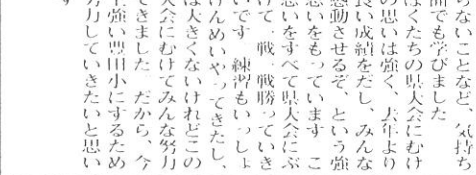 らないことなど、気持ち
面でも学びました
ぼくたちの県大会にむけ
の思いは強く、去年より
良い成績をだし、みんな
感動させるぞ、という強
思いをもっています こ
思いをすべて県大会にぶ
けて一戦一戦勝っていき
いです 練習もいっしょ
けんめいやってきたし、
は大きくないけれどこの
大会にむけてみんな努力
できました だから、今
上強い豊田小にするため
努力していきたいと思い
す